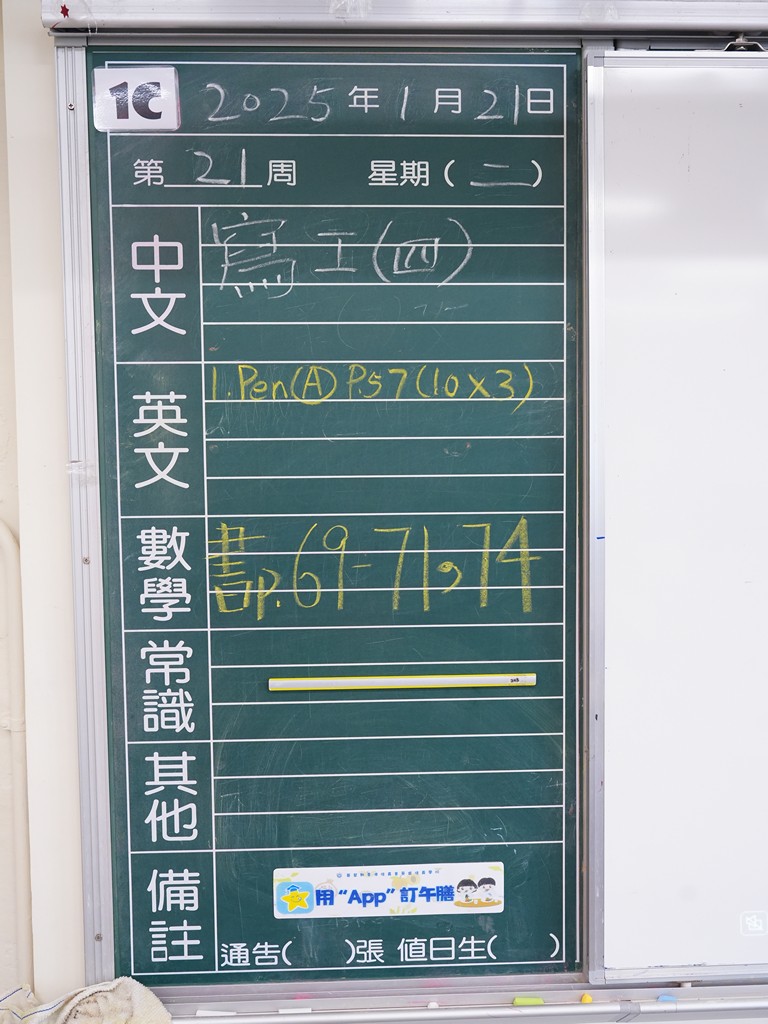 1C 2025年1月21日
第21周 星期(二)
中文 寫工(四)
英文 1.Pen(A) P.57(10x3)
數學 書p.69-71,74
常識
其他
備註
用“App”訂午膳
通告( )張 值日生( )